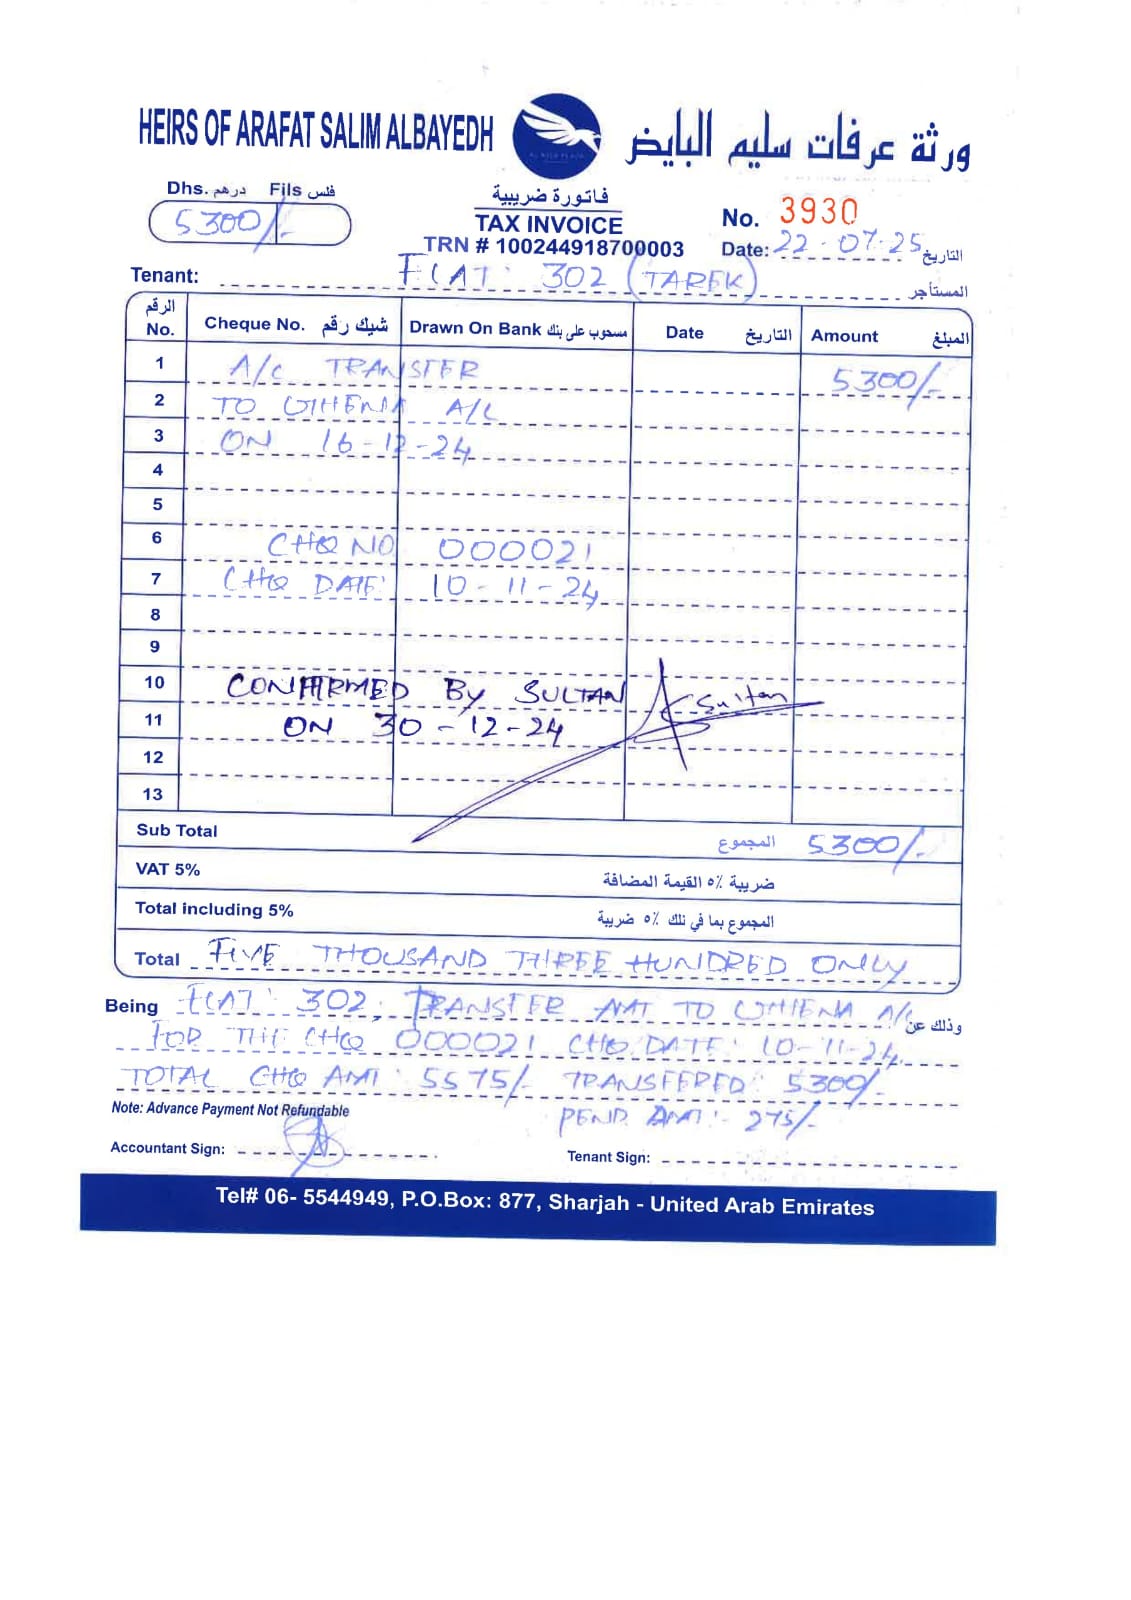 HEIRS OF ARAFAT SALIM ALBAYEDH
ورثة عرفات سليم البايض
Dhs. درهم Fils فلس
5300/-
فاتورة ضريبية
TAX INVOICE
TRN # 100244918700003
No. 3930
Date: 22-07-25 التاريخ
Tenant: FLAT: 302 (TAREK) المستأجر
الرقم No. Cheque No. شيك رقم Drawn On Bank مسحوب على بنك Date التاريخ Amount المبلغ
1 A/C TRANSFER 5300/-
2 TO GHENA A/C
3 ON 16-12-24
4
5
6 CHQ NO 000021
7 CHQ DATE: 10-11-24
8
9
10 CONFIRMED BY SULTAN Sultan
11 ON 30-12-24
12
13
Sub Total المجموع 5300/-
VAT 5% ضريبة ٥٪ القيمة المضافة
Total including 5% المجموع بما في ذلك ٥٪ ضريبة
Total FIVE THOUSAND THREE HUNDRED ONLY
Being FLAT: 302, TRANSFER AMT TO GHENA A/C وذلك عن
FOR THE CHQ 000021 CHQ DATE: 10-11-24
TOTAL CHQ AMT: 5575/- TRANSFERED: 5300/-
Note: Advance Payment Not Refundable
PEND. AMT:- 275/-
Accountant Sign:
Tenant Sign:
Tel# 06- 5544949, P.O.Box: 877, Sharjah - United Arab Emirates